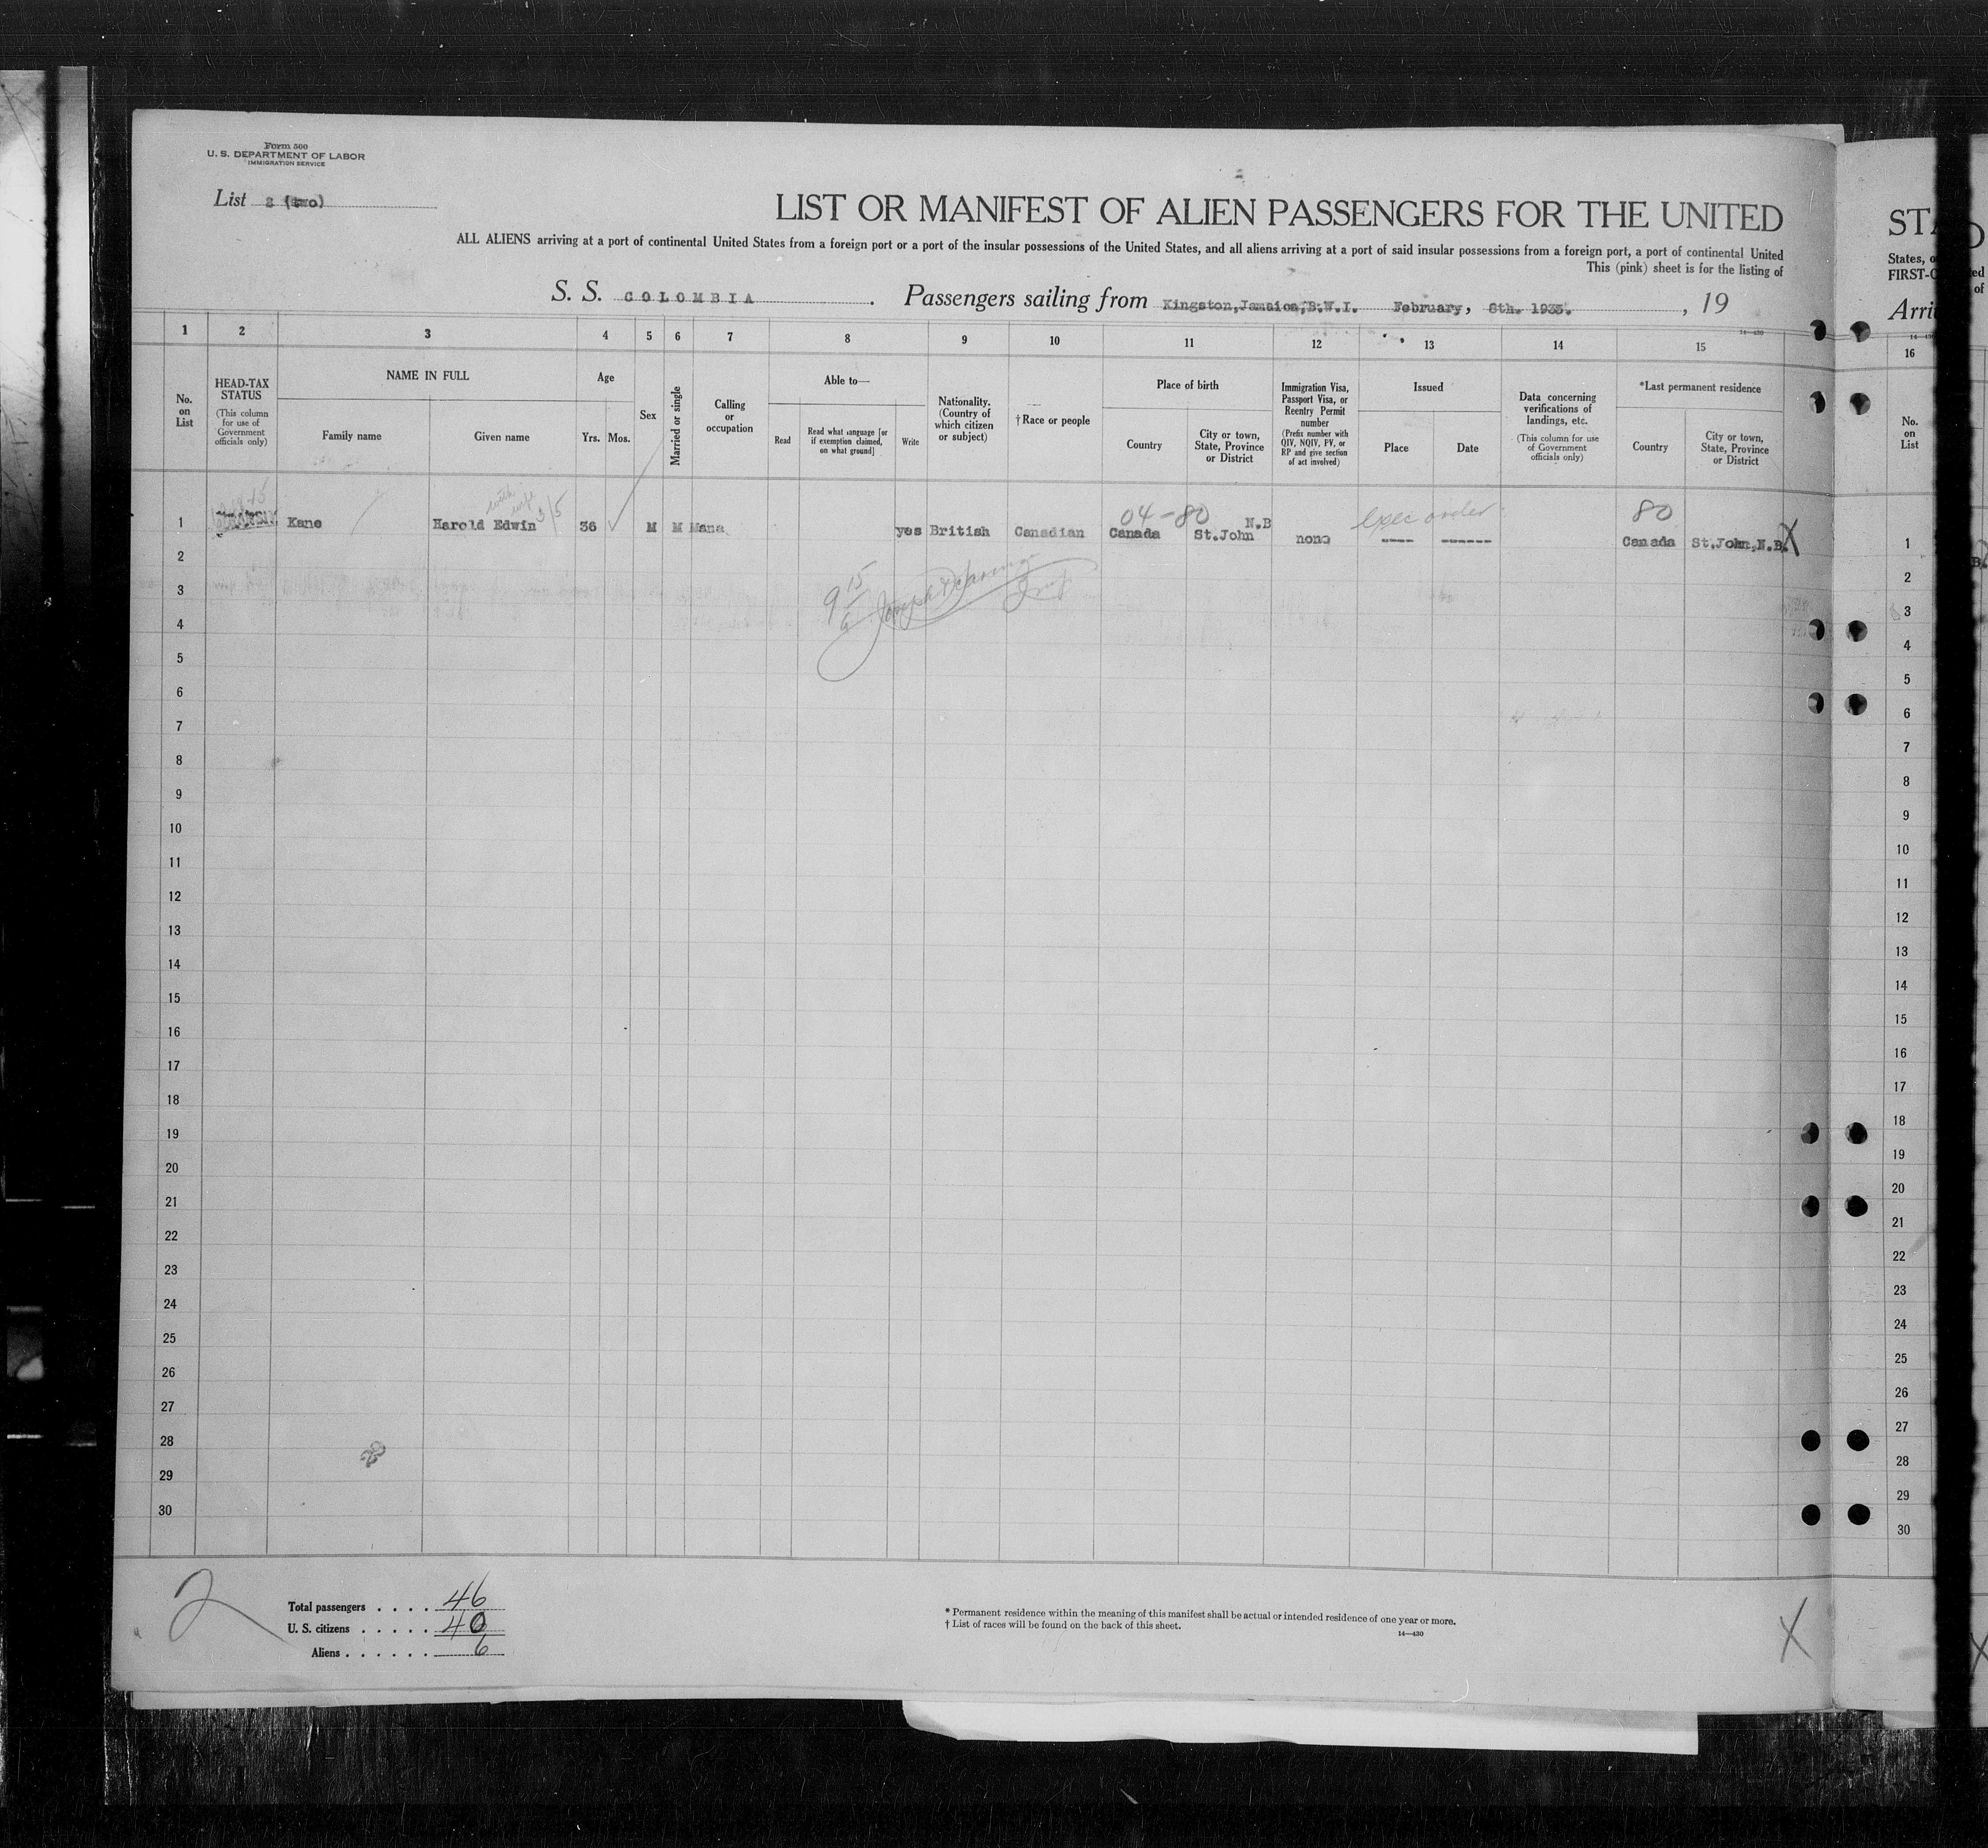 Form 500
U. S. DEPARTMENT OF LABOR
IMMIGRATION SERVICE
List 2 (two)
LIST OR MANIFEST OF ALIEN PASSENGERS FOR THE UNITED
ALL ALIENS arriving at a port of continental United States from a foreign port or a port of the insular possessions of the United States, and all aliens arriving at a port of said insular possessions from a foreign port, a port of continental United
This (pink) sheet is for the listing of
S. S. COLOMBIA . Passengers sailing from Kingston,Jamaica,B.W.I. February, 8th. 1933. , 19
14—430
1 2 3 4 5 6 7 8 9 10 11 12 13 14 15
No. on List
HEAD-TAX STATUS
(This column for use of Government officials only)
NAME IN FULL
Family name
Given name
Age
Yrs. Mos.
Sex
Married or single
Calling or occupation
Able to—
Read
Read what language [or if exemption claimed, on what ground]
Write
Nationality. (Country of which citizen or subject)
†Race or people
Place of birth
Country
City or town, State, Province or District
Immigration Visa, Passport Visa, or Reentry Permit number
(Prefix number with QIV, NQIV, PV, or RP and give section of act involved)
Issued
Place
Date
Data concerning verifications of landings, etc.
(This column for use of Government officials only)
*Last permanent residence
Country
City or town, State, Province or District
with wife 3/5
04-80
Exec order
80
1 Kane Harold Edwin 36 M M Mana yes British Canadian Canada St.John N.B none ---- ------ Canada St.John,N.B. X
2
3
4
5
6
7
8
9
10
11
12
13
14
15
16
17
18
19
20
21
22
23
24
25
26
27
28
29
30
2
Total passengers . . . . 46
U. S. citizens . . . . . 40
Aliens . . . . . . 6
* Permanent residence within the meaning of this manifest shall be actual or intended residence of one year or more.
† List of races will be found on the back of this sheet.
14—430
X
States,
FIRST-
16
No. on List
1
2
3
4
5
6
7
8
9
10
11
12
13
14
15
16
17
18
19
20
21
22
23
24
25
26
27
28
29
30